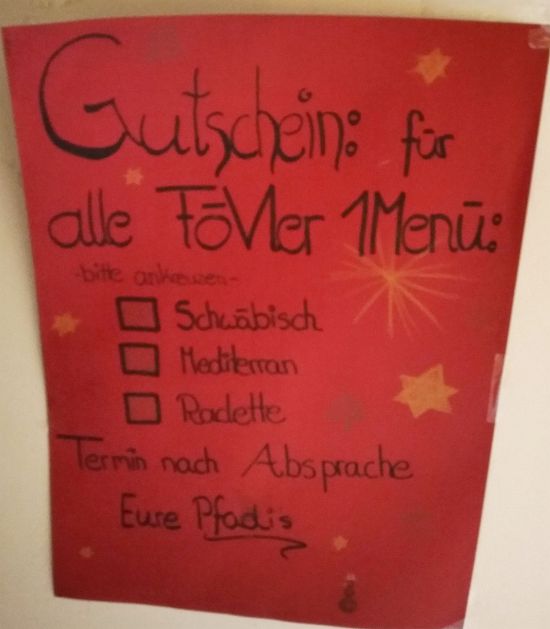 Gutschein: für
alle FöVler 1 Menü:
-bitte ankreuzen-
Schwäbisch
Mediterran
Raclette
Termin nach Absprache
Eure Pfadis